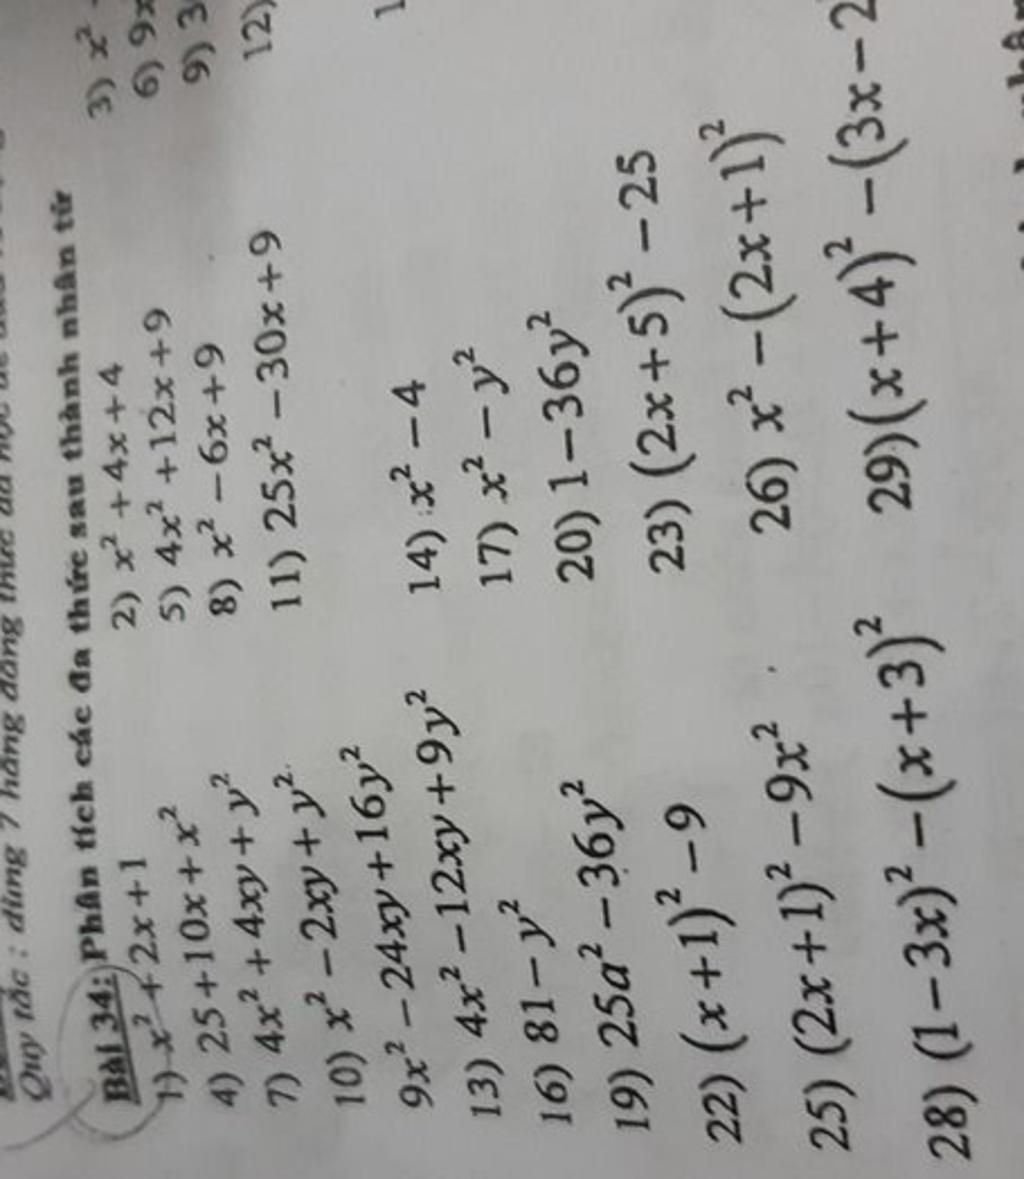 Quy tắc : dùng 7 hằng đẳng thức
Bài 34: Phân tích các đa thức sau thành nhân tử
1) x² + 2x + 1 2) x² + 4x + 4 3) x²
4) 25 + 10x + x² 5) 4x² + 12x + 9 6) 9x
7) 4x² + 4xy + y² 8) x² − 6x + 9 9) 3
10) x² − 2xy + y² 11) 25x² − 30x + 9 12)
9x² − 24xy + 16y²
13) 4x² − 12xy + 9y² 14) x² − 4 1
16) 81 − y² 17) x² − y²
19) 25a² − 36y² 20) 1 − 36y²
22) (x + 1)² − 9 23) (2x + 5)² − 25
25) (2x + 1)² − 9x² 26) x² − (2x + 1)²
28) (1 − 3x)² − (x + 3)² 29) (x + 4)² − (3x − 2